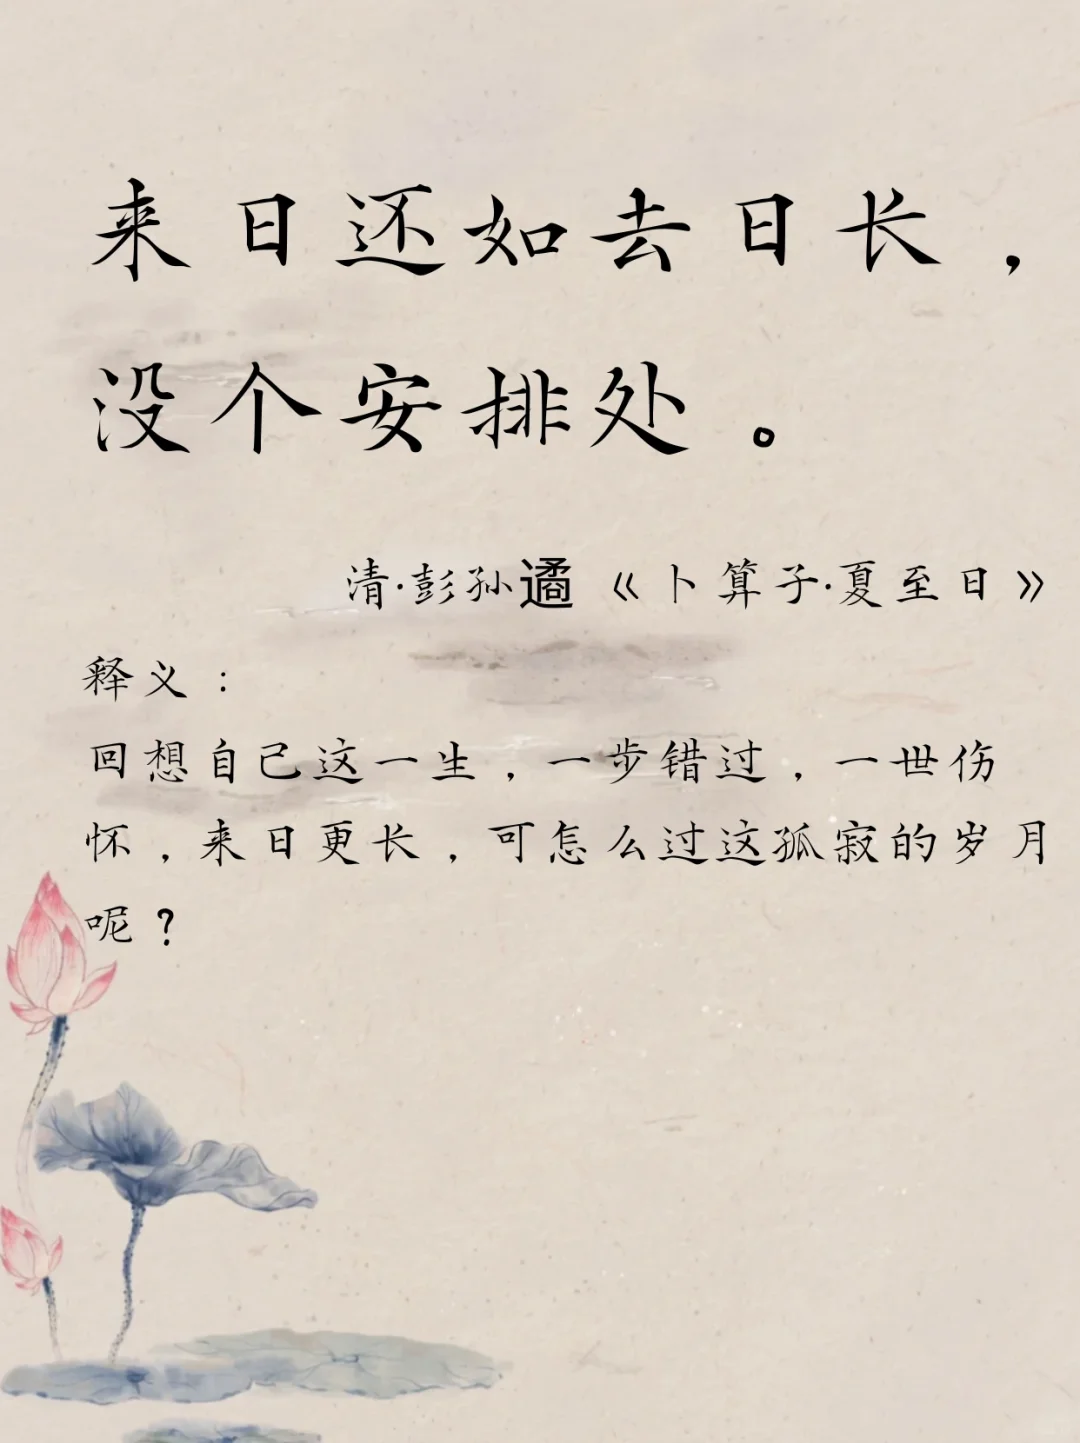 来日还如去日长，
没个安排处。
清·彭孙遹《卜算子·夏至日》
释义：
回想自己这一生，一步错过，一世伤
怀，来日更长，可怎么过这孤寂的岁月
呢？